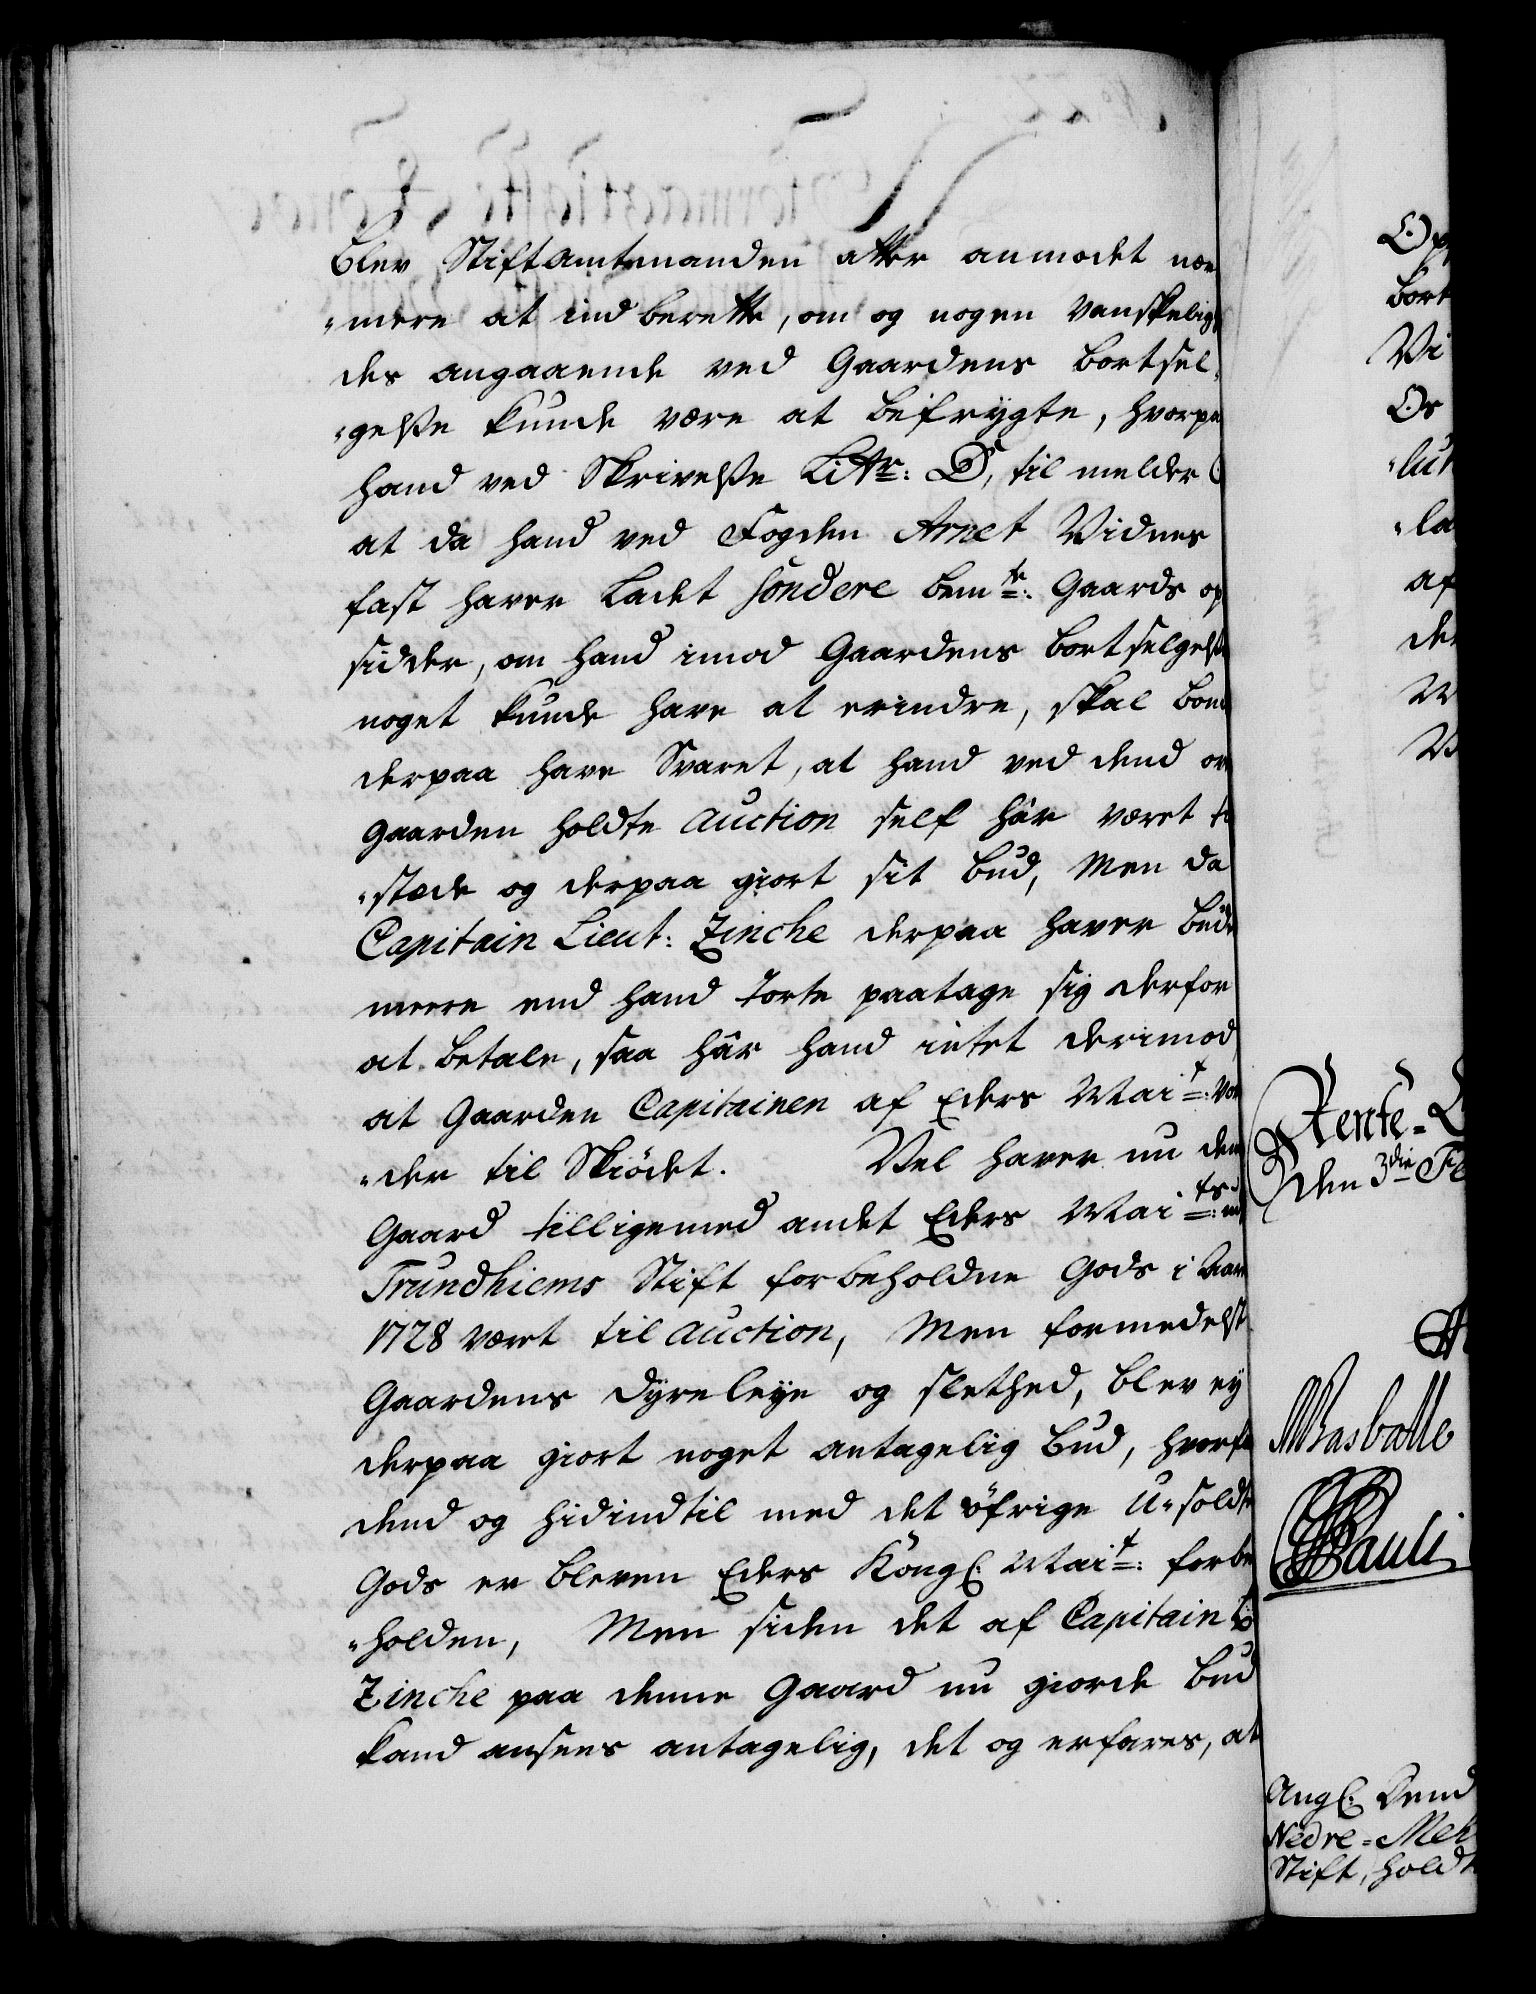 blev Stiftamtmanden atter anmodet nær
"mere at indberette, om og nogen vanskelig
des angaaende ved Gaardens bortsel,
"gelße kunde være at befrygte, hvorpa
hand ved Skrivelße Littr: D, til melder
at da hand ved Fogden Arnet Vidnes
fast haver ladet sondere bemte: Gaards op
sidder, om hand imod Gaardens bortselgelße
noget kunde have at erindre, skal bond
derpaa have Svaret, at hand ved dend ov
Gaarden holdte Auction self hâr været ti
"stede og derpaa giort sit bud, Men da
Capitain Lieut: Zinche derpaa haver bude
meere end hand torte paatage sig derfor
at betale, saa hâr hand intet derimod,
at Gaarden Capitainen af Eders Mait: vor
"der til Skiödet. Vel haver nu den
Gaard tilligemed andet Eders Maits: ud
Trundhiems Stift forbeholdne Gods i Aar
1728 været til Auction, Men formedelst
Gaardens dyre leye og slethed, blev ey
derpaa giort noget antagelig bud, hvorfo
dend og hidindtil med det öfrige U-soldte
Gods er bleven Eders Kongl: Mait: forbe
"holden, Men siden det af Capitain Li
Zinche paa denne Gaard nu giorde bud
kand ansees antagelig, det og erfares, at
Opp
bort
Vi
Os
"lun
"la
af
de
Rente=
den 3die Fe
Basballe
Pauli
Angl: Dend
Nedre=Meh
Stift, holdt